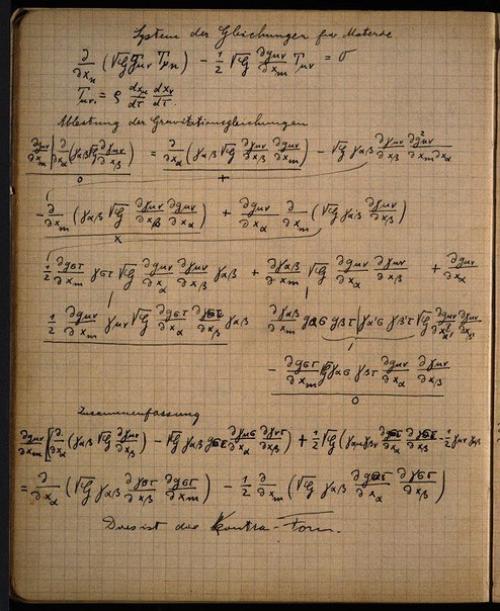 System der Gleichungen für Materie
∂/∂x_n (√g g_μν T_μn) − 1/2 √g ∂g_μν/∂x_m T_μν = 0
T_μν = ρ dx_μ/dτ dx_ν/dτ.
Ableitung der Gravitationsgleichungen
∂g_μν/∂x_m | ∂/∂x_α (γ_αβ √g ∂γ_μν/∂x_β) = ∂/∂x_α (γ_αβ √g ∂γ_μν/∂x_β ∂g_μν/∂x_m) − √g γ_αβ ∂γ_μν/∂x_β ∂g²_μν/∂x_m∂x_α
0 +
− ∂/∂x_m (γ_αβ √g ∂γ_μν/∂x_β ∂g_μν/∂x_α) + ∂g_μν/∂x_α ∂/∂x_m (√g γ_αβ ∂γ_μν/∂x_β)
x
1/2 ∂g_στ/∂x_m γ_στ √g ∂g_μν/∂x_α ∂γ_μν/∂x_β γ_αβ + ∂γ_αβ/∂x_m √g ∂g_μν/∂x_α ∂γ_μν/∂x_β + ∂g_μν/∂x_α
1/2 ∂g_μν/∂x_m γ_μν √g ∂g_στ/∂x_α ∂γ_στ/∂x_β γ_αβ ∂γ_αβ/∂x_m g_ασ g_βτ | γ_α'σ γ_β'τ √g ∂g_μν/∂x_α' ∂γ_μν/∂x_β'
− ∂g_στ/∂x_m √g γ_ασ γ_βτ ∂g_μν/∂x_α ∂γ_μν/∂x_β
0
Zusammenfassung
∂g_μν/∂x_m [∂/∂x_α (γ_αβ √g ∂γ_μν/∂x_β) − √g γ_αβ g_στ ∂γ_μσ/∂x_α ∂γ_ντ/∂x_β) + 1/2 √g (γ_αμ γ_βν ∂g_στ/∂x_α ∂γ_στ/∂x_β − 1/2 γ_μν γ_αβ
= ∂/∂x_α (√g γ_αβ ∂γ_στ/∂x_β ∂g_στ/∂x_m) − 1/2 ∂/∂x_m (√g γ_αβ ∂g_στ/∂x_α ∂γ_στ/∂x_β)
Dies ist die Kontra-Form.